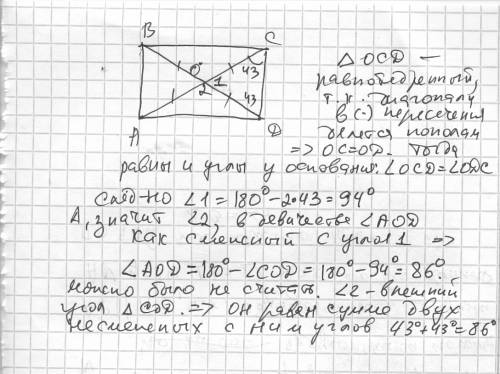 B
C
O
1
2
43
43
A
D
△ OCD –
равнобедренный,
т.к. диагонали
в (·) пересечения
делятся пополам
=> OC=OD. Тогда
равны и углы у основания: ∠OCD=∠ODC
След-но ∠1 = 180° - 2•43 = 94°
А, значит ∠2, в девичестве ∠AOD
как смежный с углом 1 =>
∠AOD = 180° - ∠COD = 180° - 94° = 86°.
можно было не считать. ∠2 - внешний
угол △COD. => он равен сумме двух
несмежных с ним углов 43°+43°=86°